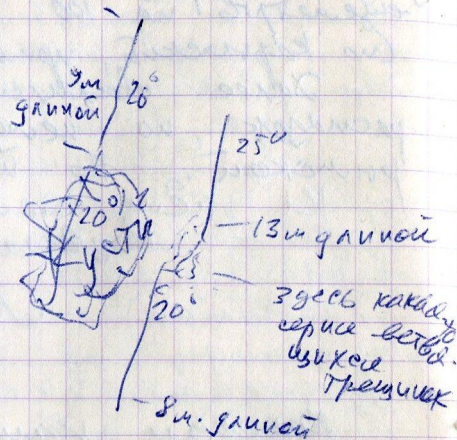 9м
длиной
20°
25°
20°
13м длиной
20°
здесь какая-то
серия ветвя-
щихся
трещинок
8м. длиной